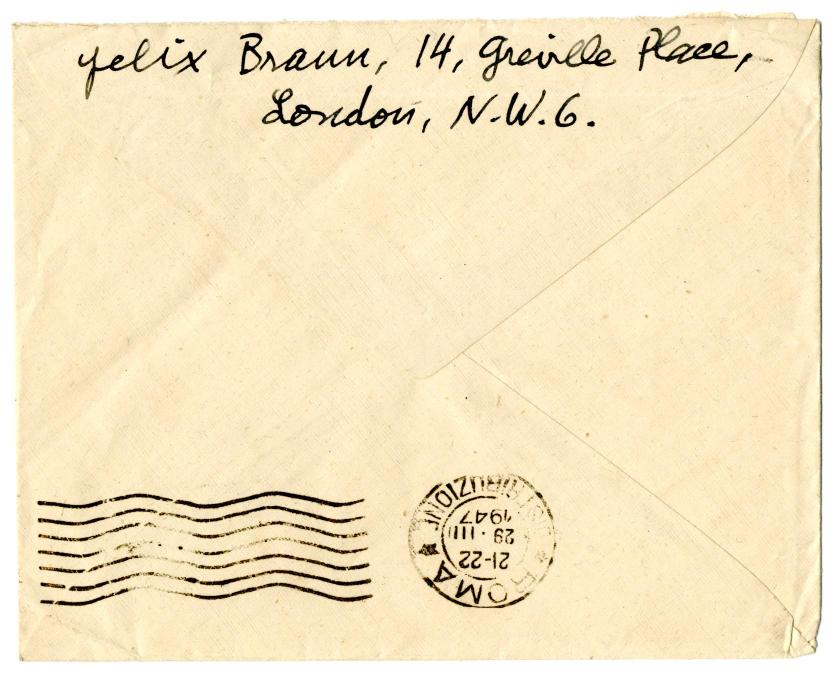 Felix Braun, 14, Greville Place,
London, N.W.6.
ROMA
DISTRIBUZIONE
21-22
29 · III
1947